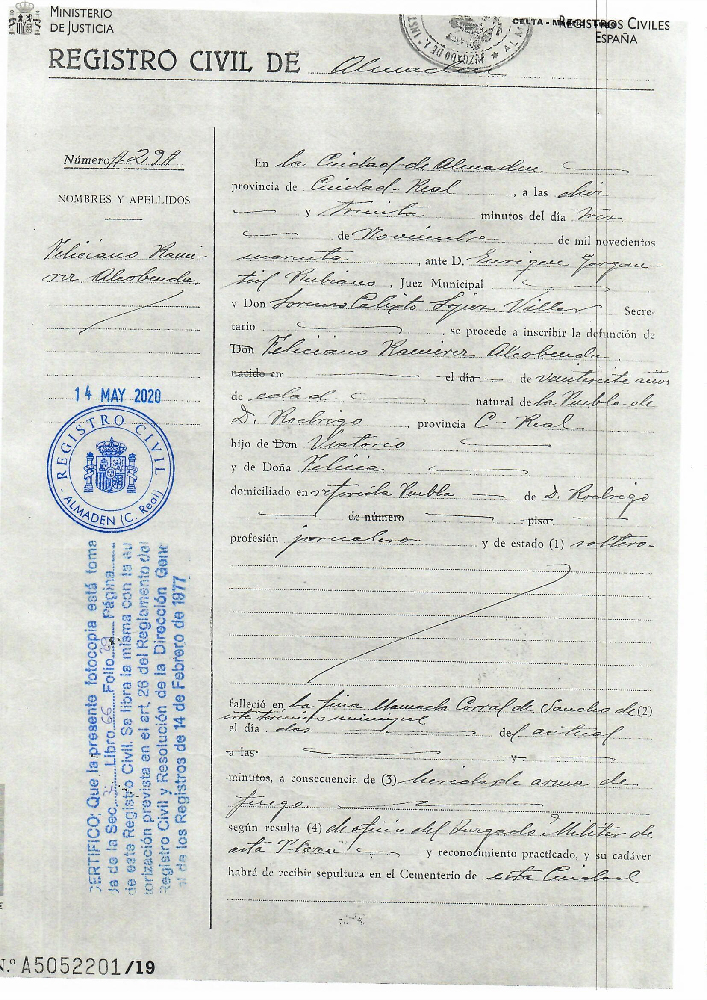 MINISTERIO
DE JUSTICIA
REGISTROS CIVILES
ESPAÑA
REGISTRO CIVIL DE Almaden
Número
NOMBRES Y APELLIDOS
Feliciano Rami
rez Alcobendas
14 MAY 2020
REGISTRO CIVIL
ALMADEN (C. Real)
CERTIFICO: Que la presente fotocopia está toma
da de la Sec. Libro 66 Folio Página
de este Registro Civil. Se libra la misma con la au
torización prevista en el art. 26 del Reglamento del
Registro Civil y Resolución de la Dirección Gene
al de los Registros de 14 de Febrero de 1977
En la Ciudad de Almaden
provincia de Ciudad-Real, a las diez
y treinta minutos del día tres
de Noviembre de mil novecientos
cuarenta, ante D. Enrique
Rubiano, Juez Municipal
y Don Lorenzo Calixto Villar Secre-
tario, se procede a inscribir la defunción de
Don Feliciano Ramirez Alcobendas
nacido en el día de veintisiete años
de edad natural de la Puebla de
D. Rodrigo, provincia C-Real
hijo de Don
y de Doña Felisa
domiciliado en referida Puebla de D. Rodrigo
de número piso
profesión jornalero y de estado (1) soltero
falleció en la finca Corral de Sancho de (2)
este termino
el día dos del actual
a las y
minutos, a consecuencia de (3) heridas de arma de
fuego
según resulta (4) de oficio del Juzgado Militar de
esta Plaza y reconocimiento practicado, y su cadáver
habrá de recibir sepultura en el Cementerio de esta Ciudad
N.º A5052201/19